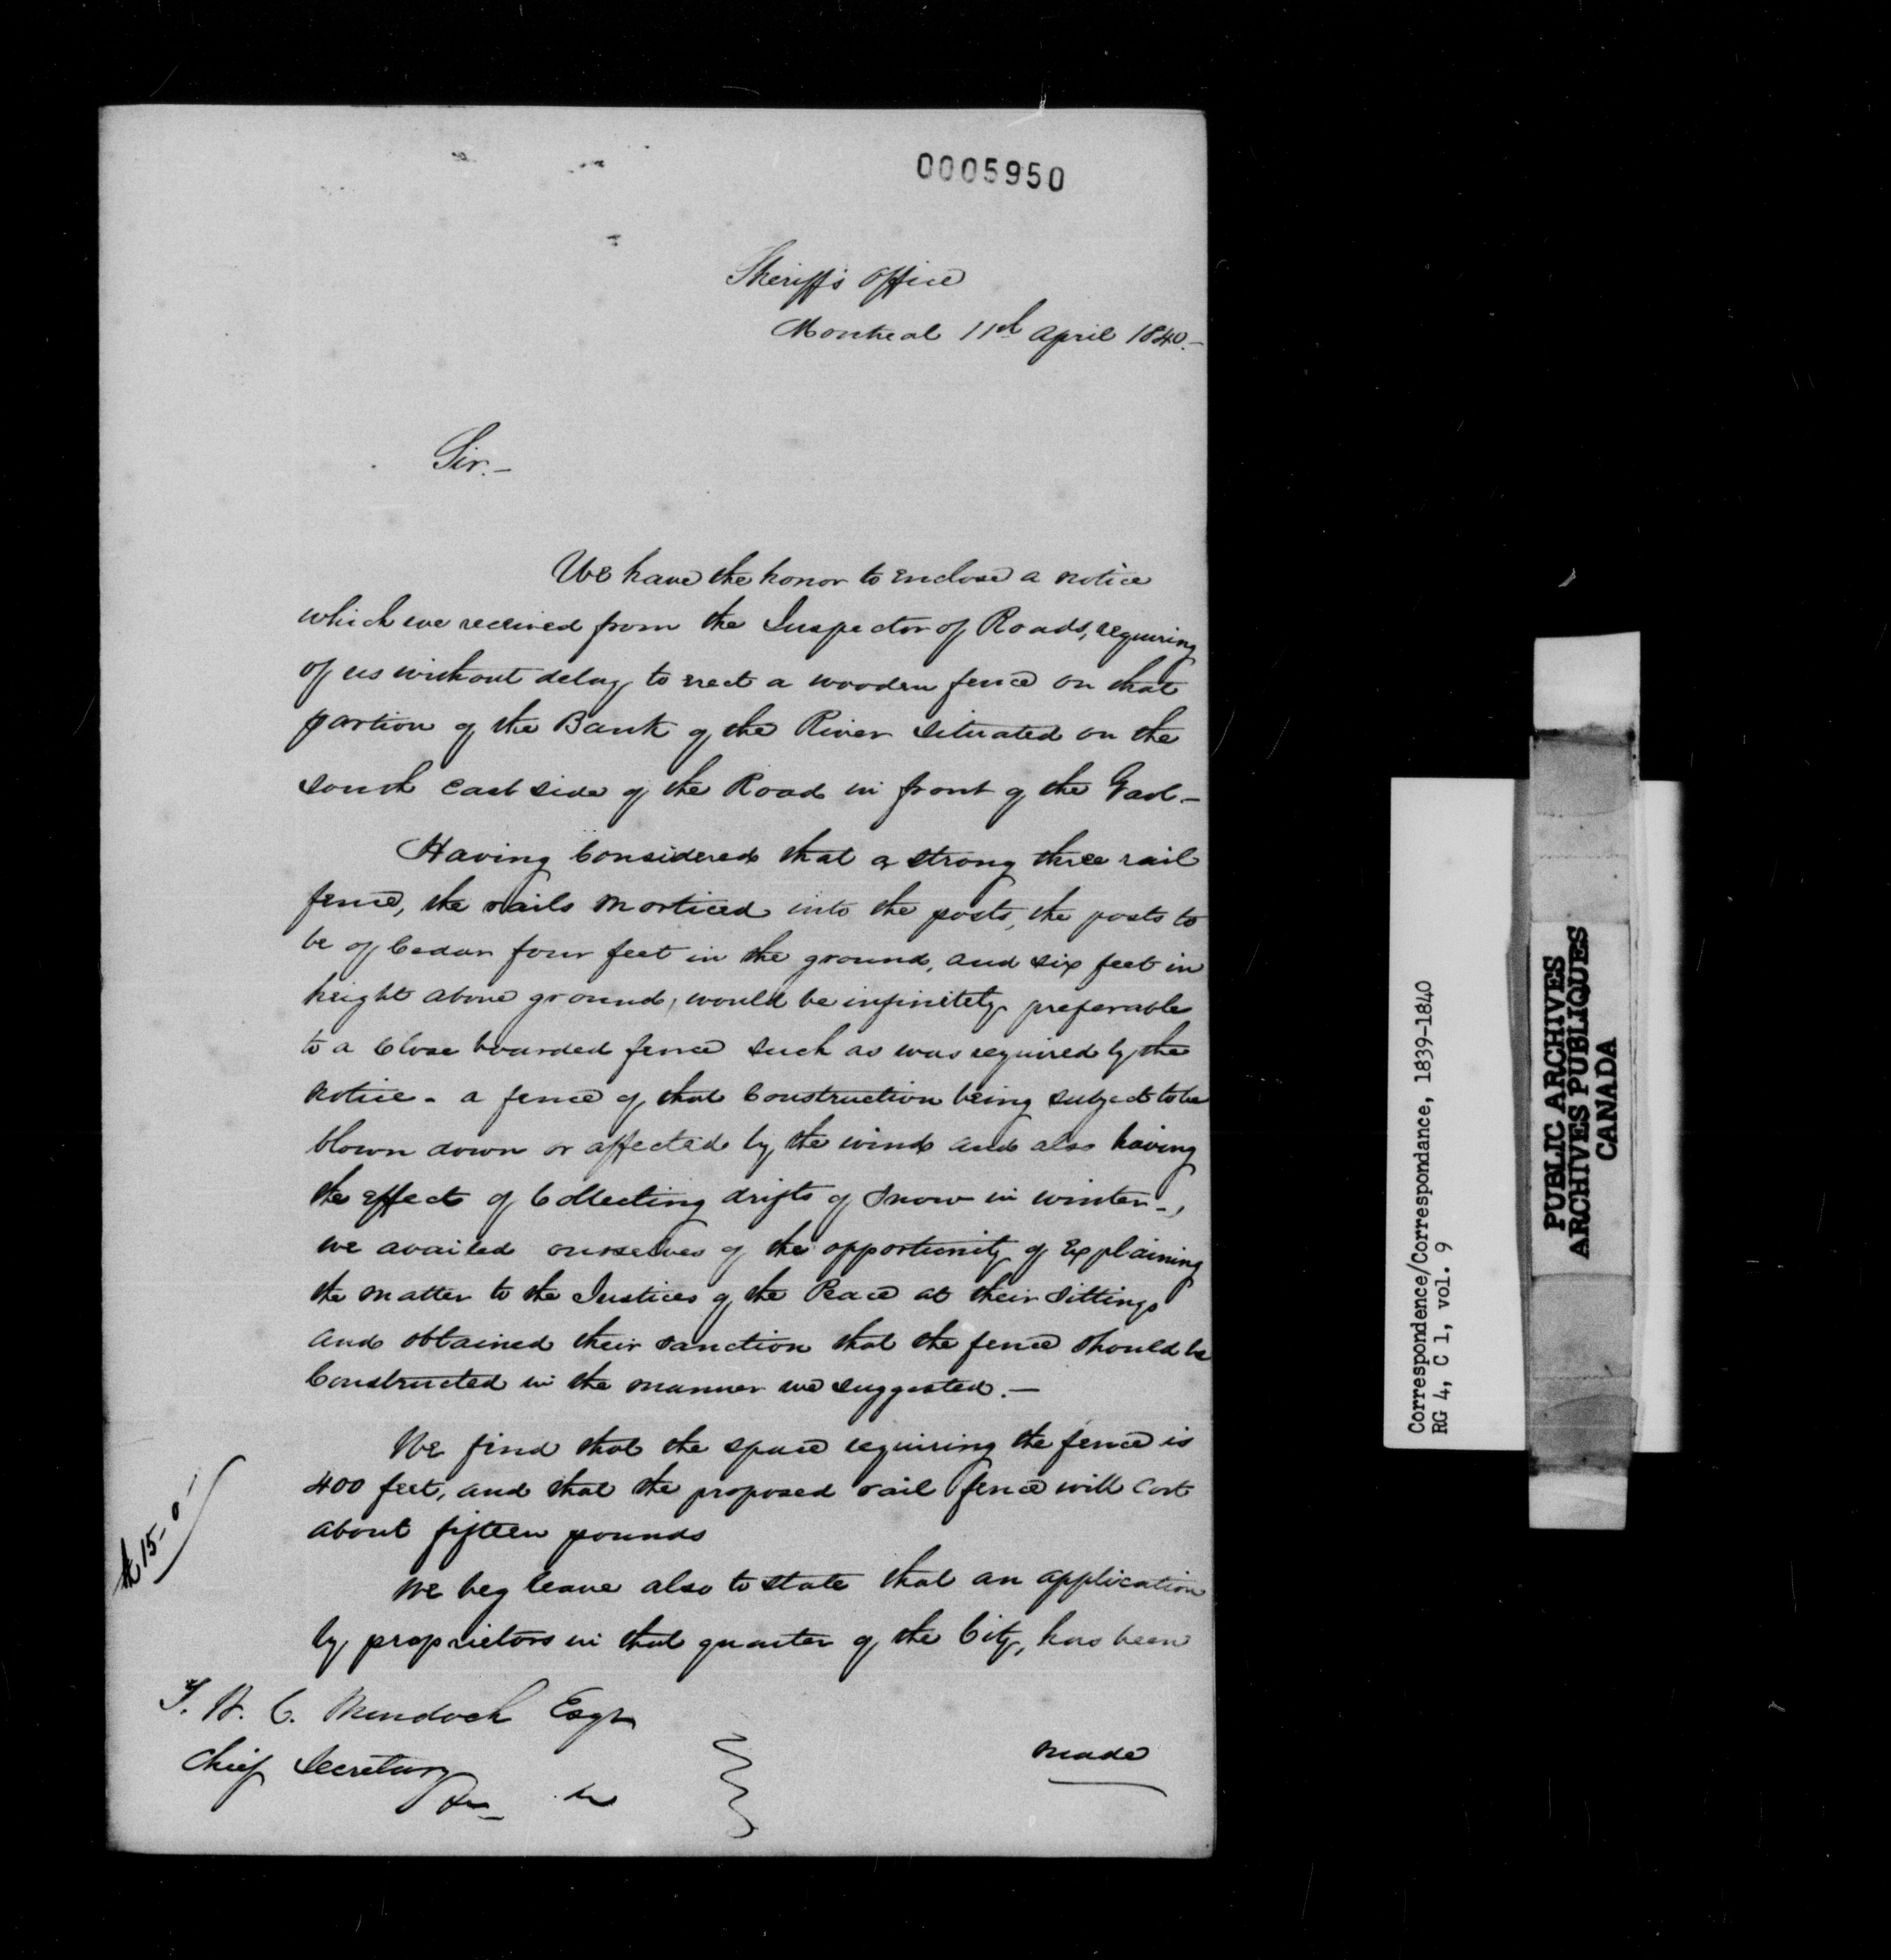 0005950
Sheriff's Office
Montreal 11th April 1840.-
Sir.-
We have the honor to enclose a notice
which we received from the Inspector of Roads, requiring
of us without delay to erect a wooden fence on that
portion of the Bank of the River situated on the
south east side of the Road in front of the Gaol.-
Having Considered that a strong three rail
fence, the rails morticed into the posts, the posts to
be of Cedar four feet in the ground, and six feet in
height above ground, would be infinitely preferable
to a Close boarded fence such as was required by the
notice - a fence of that Construction being subject to be
blown down or affected by the wind and also having
the effect of Collecting drifts of snow in winter -,
we availed ourselves of the opportunity of Explaining
the matter to the Justices of the Peace at their sittings
and obtained their sanction that the fence should be
Constructed in the manner we suggested.-
We find that the space requiring the fence is
400 feet, and that the proposed rail fence will Cost
about fifteen pounds
£ 15-0-
We beg leave also to state that an application
by proprietors in that quarter of the City, has been
made
T. W. C. Murdoch Esqr
Chief Secretary
&c &c
Correspondence/Correspondance, 1839-1840
RG 4, C 1, vol. 9
PUBLIC ARCHIVES
ARCHIVES PUBLIQUES
CANADA